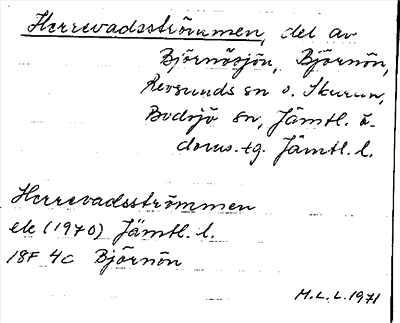 Herrevadsströmmen, del av
Björnösjön, Björnön,
Revsunds sn o. Skurun,
Bodsjö sn, Jämtl. ö.
doms.-tg. Jämtl. l.
Herrevadsströmmen
ek (1970) Jämtl. l.
18F 4c Björnön
M.L.L. 1971